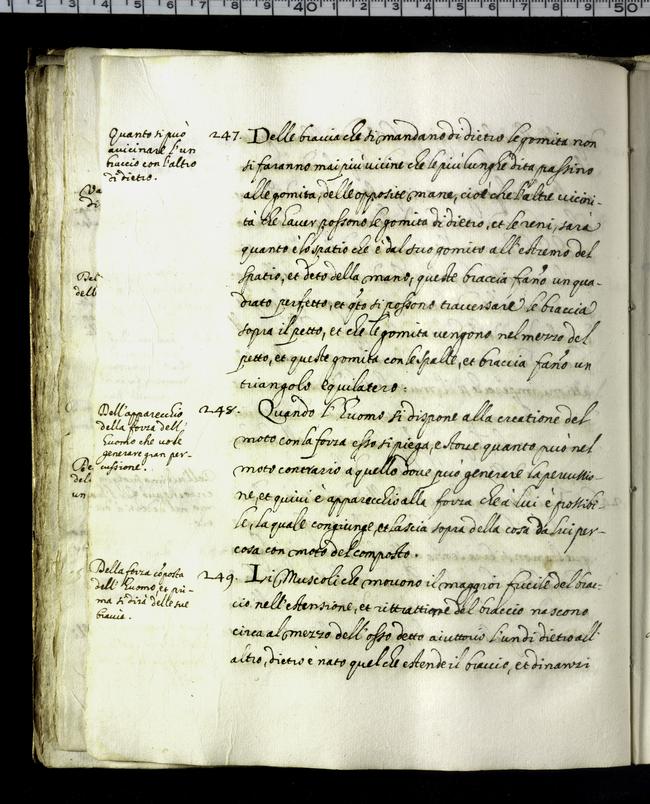 Quanto si può
avicinare l'un
braccio con l'altro
di dietro.
247. Delle bracia che si mandano di dietro le gomita non
si faranno mai più vicine che le più lunghe dita passino
alle gomita, delle opposite mane, cioè che l'altre vicini-
tà che haver possono le gomita di dietro, et le reni, sarà
quanto è lo spatio che è dal suo gomito all'estremo del
spatio, et deto della mano; queste braccia fano un qua-
drato perfetto, et qto si possono traversare le braccia
sopra il petto, et che le gomita vengono nel mezzo del
petto, et queste gomita con le spalle, et braccia fano un
triangolo equilatero.
Dell'apparecchio
della forza dell'
huomo che vole
generare gran per-
cussione.
248. Quando l'huomo si dispone alla creatione del
moto con la forza esso si piega, e storce quanto può nel
moto contrario a quello dove può generare la percussio-
ne, et quivi è apparecchio alla forza che à lui è possibi-
le, la quale congiunge, et lascia sopra della cosa da lui per-
cosa con moto del composto.
Della forza cõposta
dell'huomo, et pri-
ma si dirà delle sue
bracia.
249. Li Muscoli che movono il maggior fucile del brac-
cio nell'estensione, et rittrattione del braccio nascono
circa al mezzo dell'osso detto aiuttorio l'un di dietro all'
altro, dietro è nato quel che estende il braccio, et dinanzi
Va
di
Del
dell
De
del
un